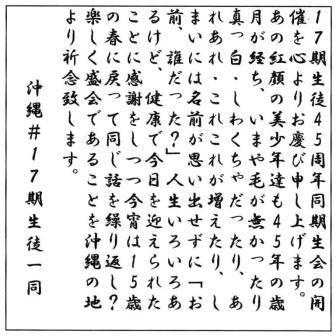 17期生徒45周年同期生会の開
催を心よりお慶び申し上げます。
あの紅顔の美少年達も45年の歳
月が経ち、いまや毛が無かったり
真っ白・しわくちゃだったり、あ
れあれ・これこれが増えたり、し
まいには名前が思い出せずに「お
前、誰だった?」人生いろいろあ
るけど、健康で今日を迎えられた
ことに感謝をしつつ今宵は15歳
の春に戻って同じ話を繰り返し?
楽しく盛会であることを沖縄の地
より祈念致します。
沖縄#17期生徒一同